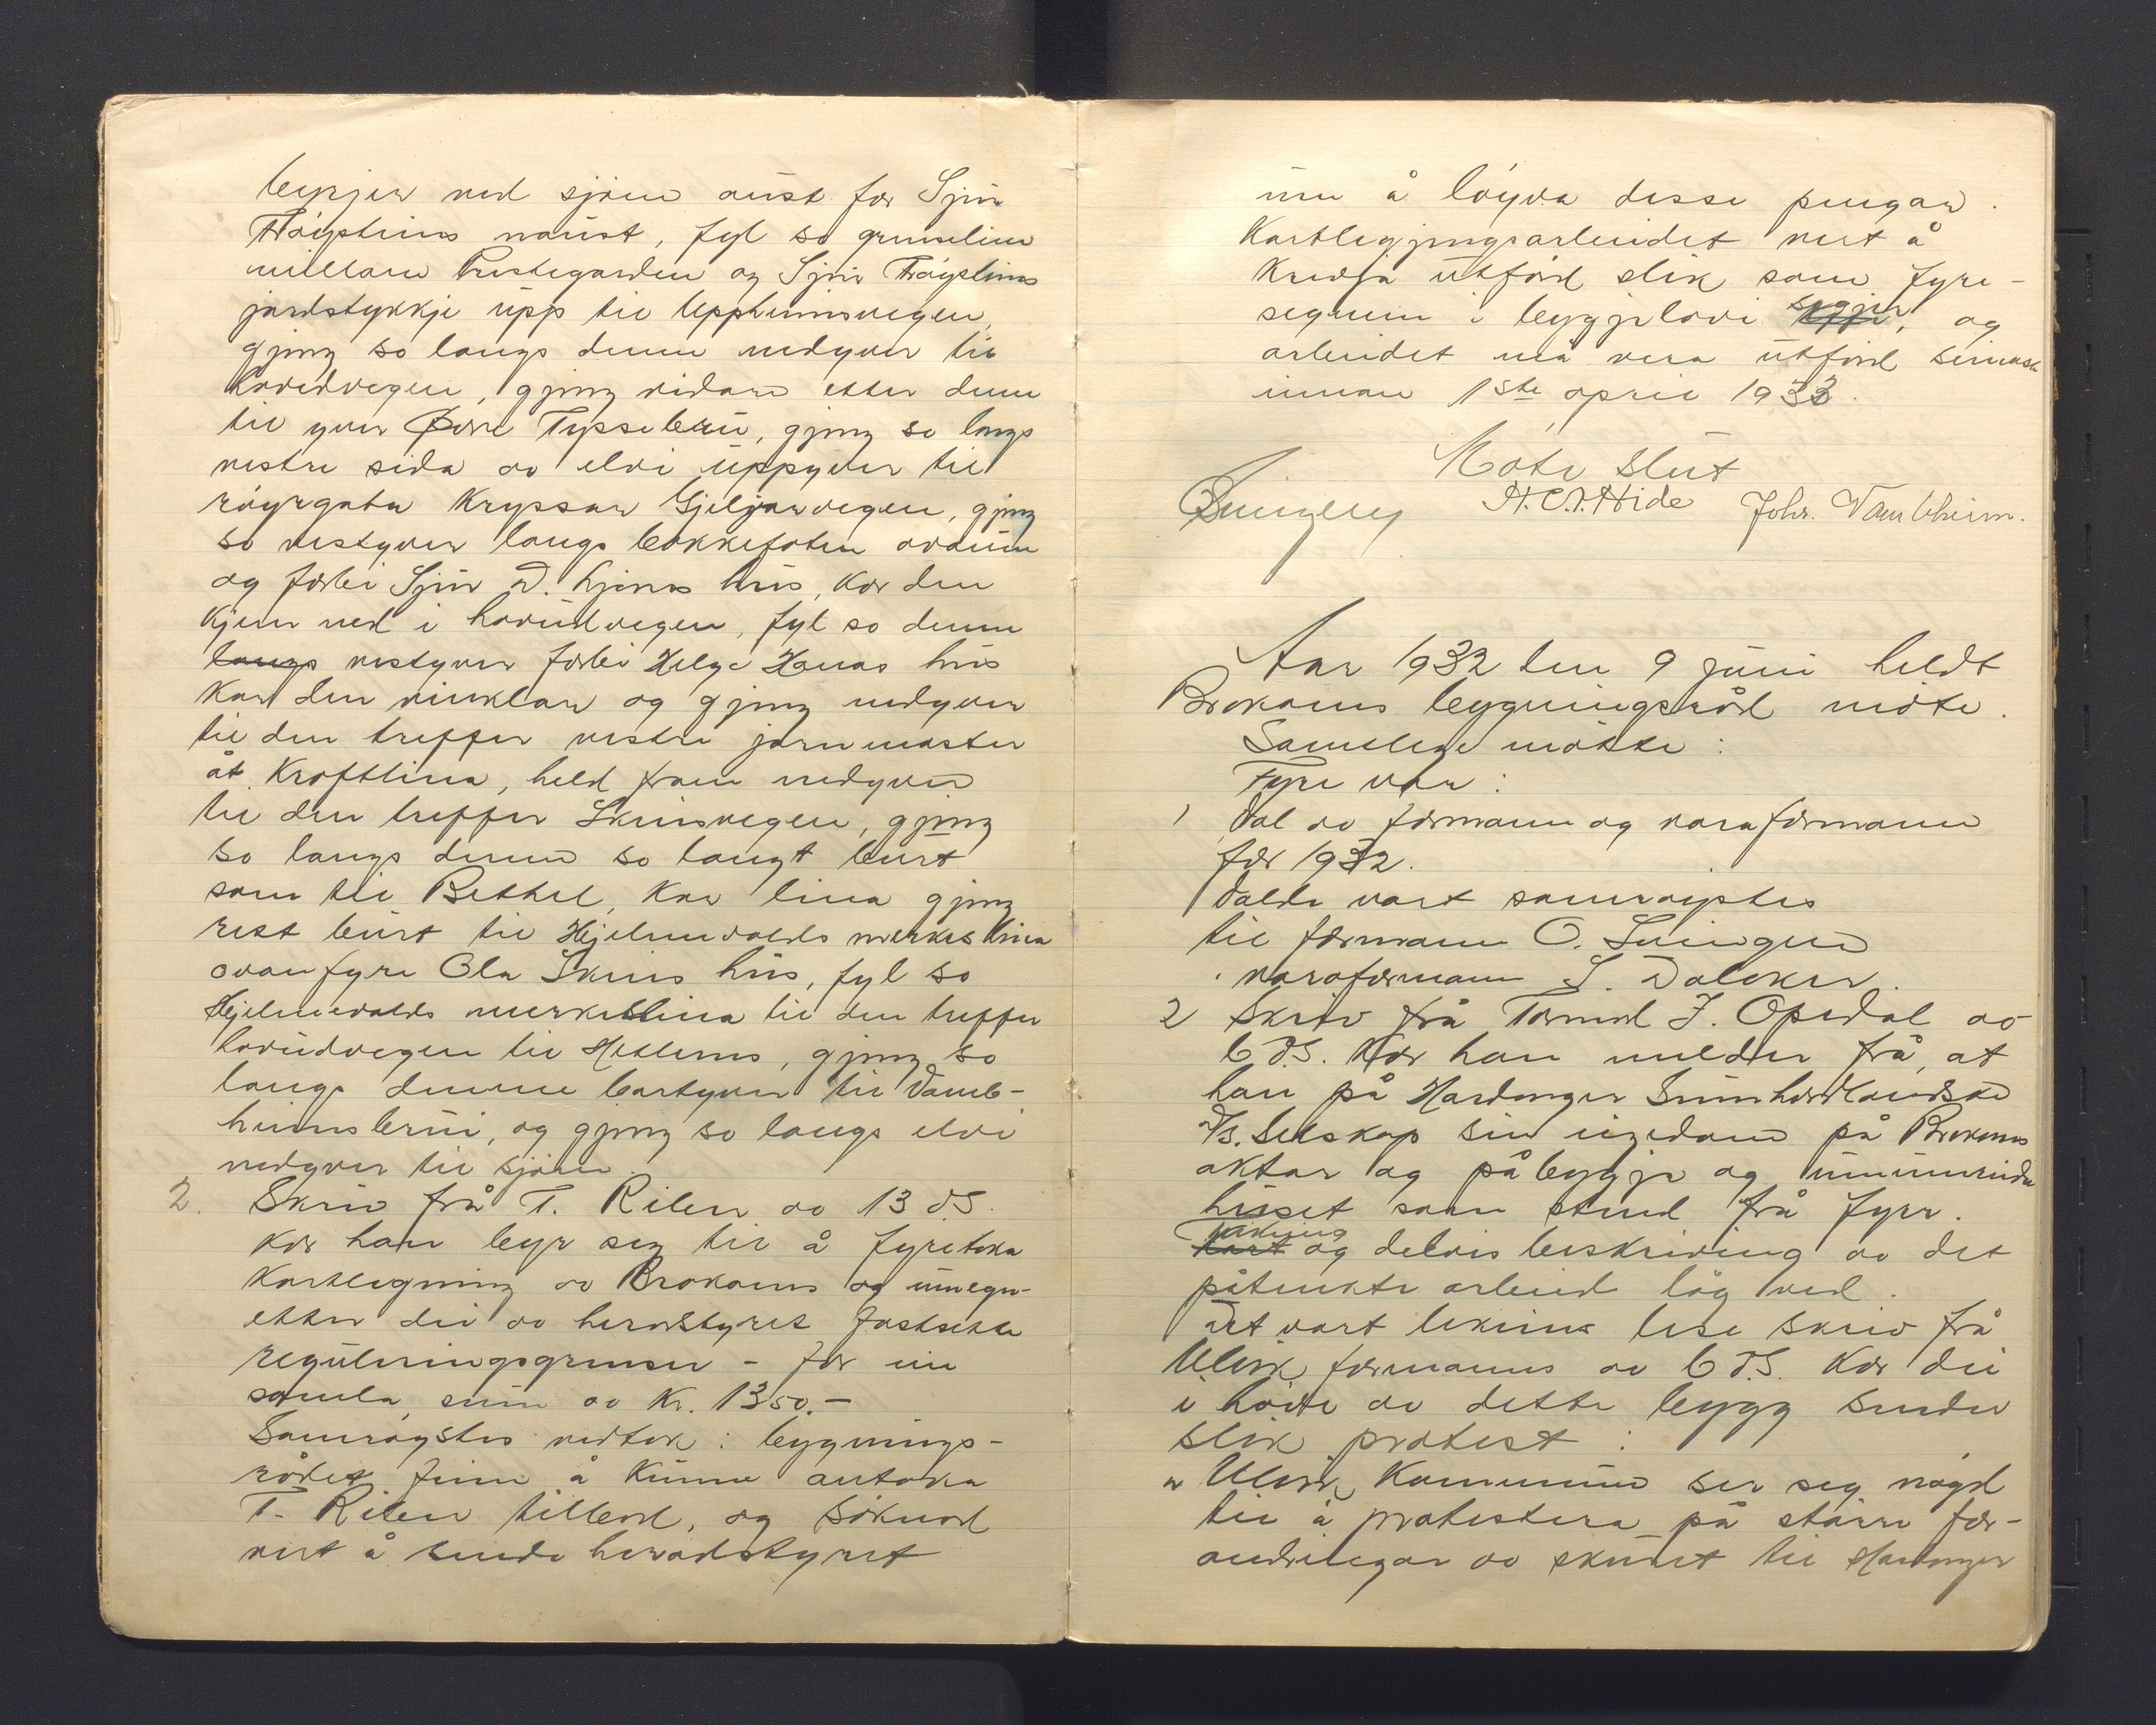 byrjar ved sjöen aust for Sjur
Tröysteins naust, fyl so grenselina
millom Prestegarden og Sjur Tröysteins
jordstykkje upp til Uppheimsvegen,
gjeng so langs denne nedyver til
hovedvegen, gjeng vidare etter denne
til yver Øvre Tyssebrui, gjeng so langs
vestre sida av elvi uppyver til
röyrgata kryssar Gjeljarvegen, gjeng
so vestyver langs bakkefoten ovanum
og forbi Sjur D. Ljones hus, kor den
kjem ned i hovudvegen, fyl so denne
langs vestyver forbi Helge Hanas hus
kor den vinklar og gjeng nedyver
til den treffer vestre jarnmaster
åt Kraftlina, held fram nedyver
til den treffer Skeisvegen, gjeng
so langs denne so langt burt
som til Bethel, kor lina gjeng
rest burt til Hjelmevolds merkeslina
ovanfyre Ola Skeis hus, fyl so
Hjelmevolds merkeslina til den treffer
hovudvegen til Hetlenes, gjeng so
langs denne bortyver til Vamb-
heimsbrui, og gjeng so langs elvi
nedyver til sjöen.
2. Skriv frå T. Rilen av 13 ds.
kor han byr seg til å fyretaka
kartlegning av Brakanes og umegn
etter dei av heradstyret fastsette
reguleringsgrenser - for ein
samla sum av kr. 1350.-
Samröystes vedtok: bygnings-
rådet finn å kunne antaka
T. Rilen tilbod, og söknad
vert å sende heradstyret
um å löyva desse pengar.
Kartleggjingsarbeidet vert å
krevja utförd slik som fyre-
segnene i byggjelovi segjer, og
arbeidet må vera utförd seinast
innan 1ste april 1933.
Möte slut
H. O. Hide Johs. Vambheim.
Aar 1932 den 9 juni heldt
Brakanes bygningsråd möte.
Samtlege mötte:
Fyre var:
1 Val av formann og varaformann
for 1932.
Valde vart samröystes
til formann O. Lvingen
" varaformann S. Dalaker.
2 Skriv frå Tormod J. Opedal av
6 ds. kor han melder frå, at
han på Hardanger Sunnhordlandske
D/s. Selskap sin eigedom på Brakanes
aktar og påbyggja og uminnreida
huset som stend frå fyrr.
kart Teikning og delvis beskriving av det
påtenkte arbeid låg ved.
Det vart likeins lese skriv frå
Ulvik formanns av 6 ds. kor dei
i höve av dette bygg sender
slik protest:
" Ulvik Kommune ser seg nögd
til å protestera på större for-
andringar av skuret til Hardanger